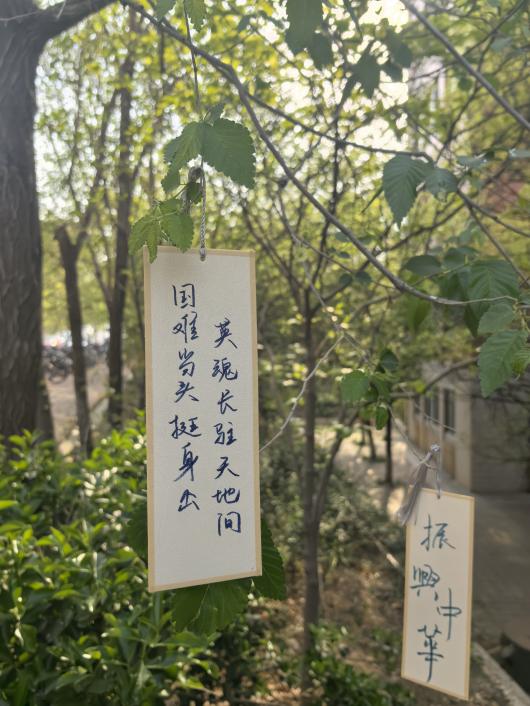 国难当头挺身出
英魂长驻天地间
振興中華